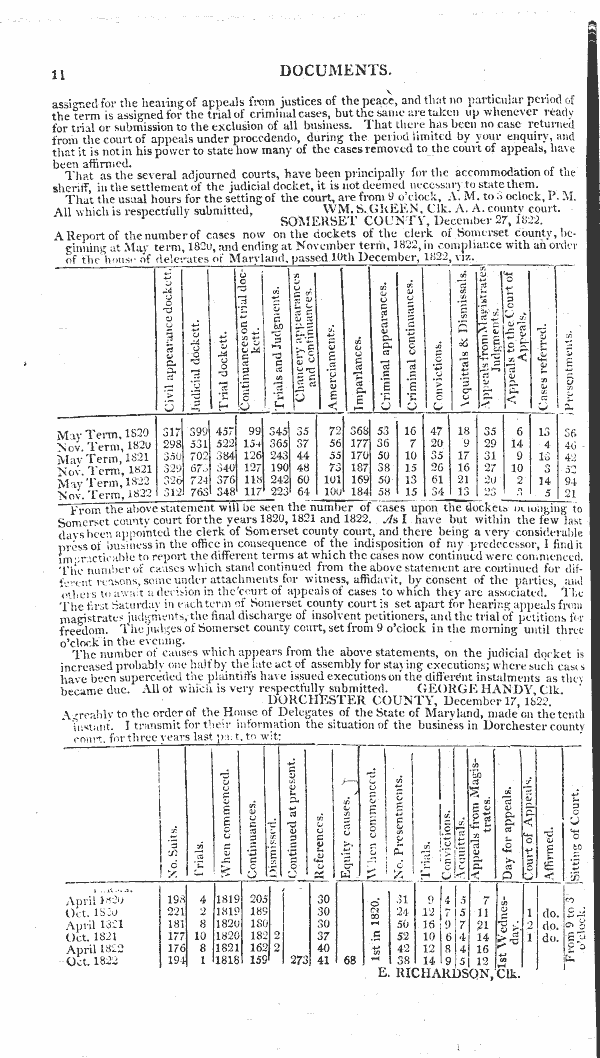 11 DOCUMENTS.
assigned for the hearing of appeals from justices of the peace, and that no particular period of
the term is assigned for the trial of criminal cases, but the same are taken up whenever ready
for trial or submission to the exclusion of all business. That there has been no case returned
from the court of appeals under procedendo, during the period limited by your enquiry, and
that it is not in his power to state how many of the cases removed to the court of appeals, have
been affirmed.
That as the several adjourned courts, have been principally for the accommodation of the
sheriff, in the settlement of the judicial docket, it is not deemed necessary to state them.
That the usual hours for the setting of the court, are from 9 o'clock, A. M. to 3 oclock, P. M.
All which is respectfully submitted, WM. S. GREEN, Clk. A. A. county court.
SOMERSET COUNTY, December 27, 1822.
A Report of the number of cases now on the dockets of the clerk of Somerset county, be-
ginning at May term, 1820, and ending at November term, 1822, in compliance with an order
of the house of delegates of Maryland, passed 10th December, 1822, viz.
Civil appearance dockett. Judicial dockett. Trial dockett. Continuances on trial doc-kett. Trials and Judgments. Chancery appearances and continuances. Amerciaments. Imparlances. Criminal appearances. Criminal continuances. Convictions. Acquittals & Dismissals. Appeals from Magistrates Judgments. Appeals to the Court of Appeals. Cases referred. Presentments.
May Term, 1820 317 399 457 99 345 35 72 368 53 16 47 18 35 6 13 36
Nov. Term, 1820 298 531 522 154 365 37 56 177 36 7 20 9 29 14 4 46
May Term, 1821 350 702 384 126 243 44 55 170 50 10 35 17 31 9 42
Nov. Term, 1821 329 340 127 190 48 73 187 38 15 26 16 27 10 3 52
May Term, 1822 326 724 376 118 242 60 101 169 50 13 61 21 20 2 14 94
Nov. Term, 1822 312 763 348 117 223 64 100 184 58 15 34 13 5 21
From the above statement will be seen the number of cases upon the dockets belonging to
Somerset county court for the years 1820, 1821 and 1822. As I have but within the few last
days been appointed the clerk of Somerset county court, and there being a very considerable
press of business in the office in consequence of the indisposition of my predecessor, I find it
impracticable to report the different terms at which the cases now continued were commenced.
The number of causes which stand continued from the above statement are continued for dif-
ferent reasons, some under attachments for witness, affidavit, by consent of the parties, and
others to await a decision in the court of appeals of cases to which they are associated. The
The first Saturday in each term of Somerset county court is set apart for hearing appeals from
magistrates judgments, the final discharge of insolvent petitioners, and the trial of petitions for
freedom. The judges of Somerset county court, set from 9 o'clock in the morning until three
o'clock in the evening.
The number of causes which appears from the above statements, on the judicial docket is
increased probably one half by the late act of assembly for staying executions; where such cases
have been superceded the plaintiffs have issued executions on the different instalments as they
became due. All of which is very respectfully submitted. GEORGE HANDY, Clk.
DORCHESTER COUNTY, December 17, 1822.
Agreably to the order of the House of Delegates of the State of Maryland, made on the tenth
instant. I transmit for their information the situation of the business in Dorchester county
court, for three years last past, to wit:
No. Suits. Trials. When commenced. Continuances. Dismissed. Continued at present. References. Equity causes. When commenced. No. Presentments. Trials. Convictions. Acquittals. Appeals from Magis-trates. Day for appeals. Court of Appeals. Affirmed. Sitting of Court.
April 1820 198 4 1819 205 30 1st in 1820. 31 9 4 5 7 1st Wednes-day. From 9 to 3 o'clock.
Oct. 1820 221 2 1819 189 30 24 12 7 5 11 1 do.
April 1821 181 8 1820 180 30 50 16 9 7 21 2 do.
Oct. 1821 177 10 1820 182 2 37 52 10 6 4 14 1 do.
April 1822 176 8 1821 162 2 40 42 12 8 4 16
Oct. 1822 194 1 1818 159 273 41 68 38 14 9 5 12
E. RICHARDSON, Clk.